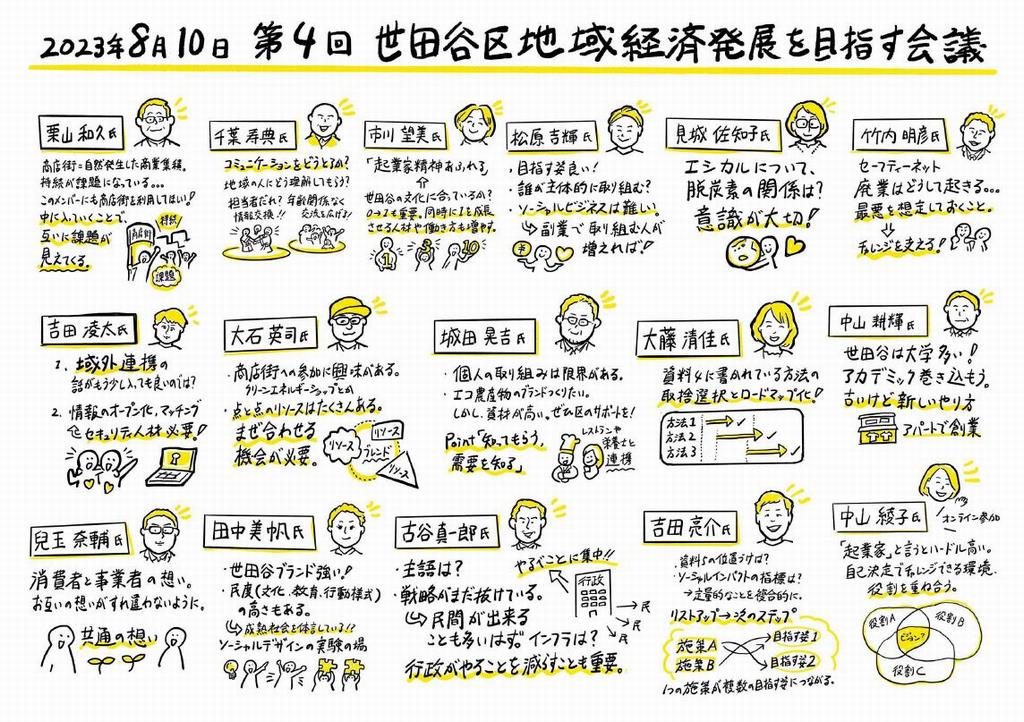 2023年8月10日 第4回 世田谷区地域経済発展を目指す会議
栗山 和久氏
商店街=自然発生した商業集積。
持続が課題になっている...
このメンバーにも商店街を利用してほしい!
中に入っていくことで、
互いに課題が
見えてくる。
商店街
持続
課題
千葉 寿典氏
コミュニケーションをどうとるか?
地域の人にどう理解してもらう?
担当者だれ?年齢関係なく
情報交換!!
交流を広げる!
市川 望美氏
「起業家精神あふれる」
世田谷の文化に合っているか?
0→1も重要。同時に1を成長
させる人材や働き方も増やす。
1
3
10
松原 吉輝氏
・目指す姿良い!
・誰が主体的に取り組む?
・ソーシャルビジネスは難しい。
↳ 副業で取り組む人が
増えれば!
見城 佐知子氏
エシカルについて、
脱炭素の関係は?
意識が大切!
竹内 明彦氏
セーフティーネット
廃業はどうして起きる...
最悪を想定しておくこと。
↳ チャレンジを支える!
吉田 凌太氏
1. 域外連携の
話がもう少し入っても良いのでは?
2. 情報のオープン化、マッチング
セキュリティ人材必要!
大石 英司氏
・商店街への参加に興味がある。
クリーンエネルギーシップとか
・点と点のリソースはたくさんある。
まぜ合わせる
機会が必要。
リソース
リソース
ブレンド
リソース
城田 晃吉氏
・個人の取り組みは限界がある。
・エコ農産物のブランドつくりたい。
しかし、資材が高い。ぜひ区のサポートを!
Point「知ってもらう、
需要を知る」
レストランや
栄養士と
連携
大藤 清佳氏
資料4に書かれている方法の
取捨選択とロードマップ化!
方法1
方法2
方法3
中山 耕輝氏
世田谷は大学多い!
アカデミック巻き込もう。
古いけど新しいやり方
アパートで創業
兒玉 奈輔氏
消費者と事業者の想い。
お互いの想いがすれ違わないように。
共通の想い
田中 美帆氏
・世田谷ブランド強い!
・民度(文化、教育、行動様式)
の高さもある。
↳ 成熟社会を体言している!?
ソーシャルデザインの実験の場
古谷 真一郎氏
・主語は?
・戦略がまだ抜けている。
↳ 民間が出来る
ことも多いはず。インフラは?
行政がやることを減らすことも重要。
やるべことに集中!!
行政
民
民
民
吉田 亮介氏
・資料5の位置づけは?
・ソーシャルインパクトの指標は?
→定量的なことを複合的に。
リストアップ→次のステップ
施策A
施策B
目指す姿1
目指す姿2
1つの施策が複数の目指す姿につながる。
中山 綾子氏
オンライン参加
「起業家」と言うとハードル高い。
自己決定でチャレンジできる環境。
役割を重ね合う。
役割A
役割B
ビジョン?
役割C